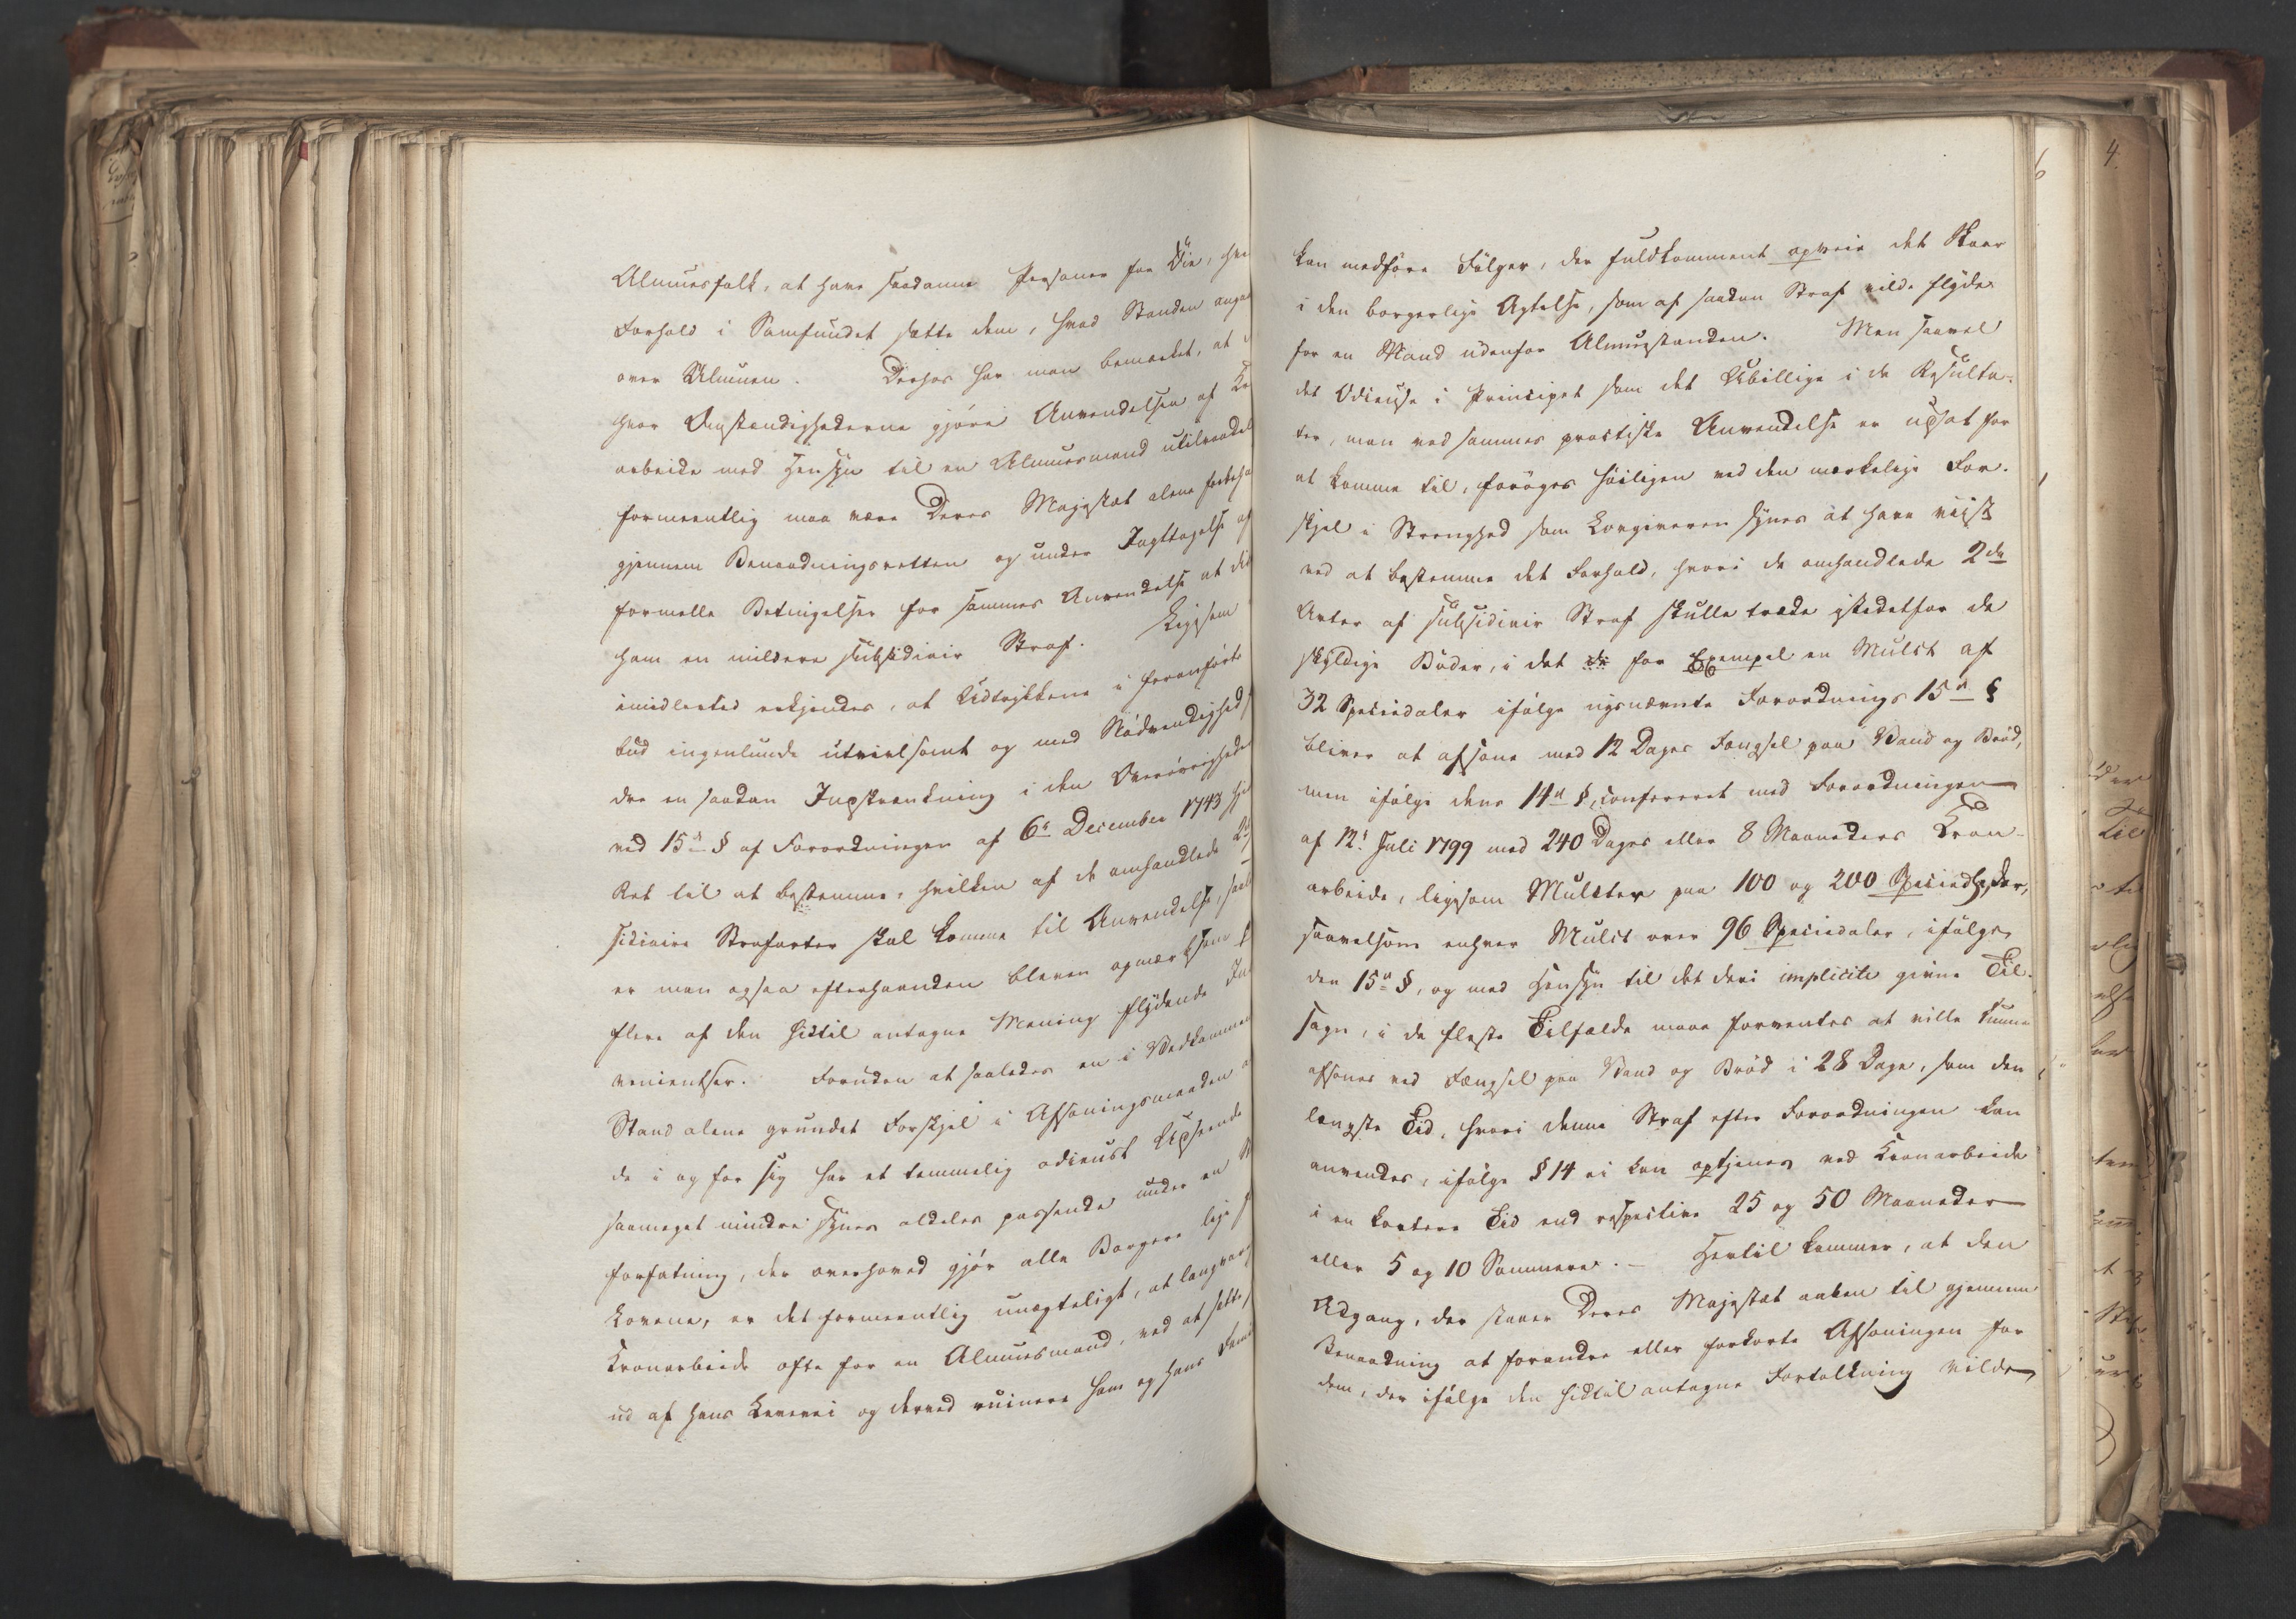 Almuesfolk, at have saadanne Personer for Øie, hvis
Forhold i Samfundet sætte dem, hvad Standen angaaer
over Almuen. Derhos har man bemærket, at
hvor Omstændighederne gjøre Anvendelsen af
arbeide med Hensyn til en Almuesmand utilraadelig
formeentlig maa være Deres Majestæt alene forbeholdt
gjennem Benaadningsretten og under Iagttagelse af
formelle Betingelser for sammes Anvendelse at
ham en mildere subsidiair Straf. Ligesom
imidlertid erkjendes, at Udtrykkene i foranførte
bud ingenlunde utvivlsomt og med Nødvendighed
dre en saadan Indskrænkning i den Overøvrigheden
ved 15de § af Forordningen af 6te December 1743
Ret til at bestemme, hvilken af de omhandlede 2de
sidiaire Strafarter skal komme til Anvendelse,
er man ogsaa efterhaanden bleven opmærksom
flere af den hidtil antagne Mening flydende
venientser. Foruden at saaledes en i Vedkommendes
Stand alene grundet Forskjel i Afsoningsmaaden
de i og for sig har et temmelig odieust Udseende
saameget mindre synes aldeles passende under en
forfatning, der overhoved gjør alle Borgere lige
Lovene, er det formeentlig unægteligt, at langvarigt
Kronarbeide ofte for en Almuesmand, ved at sætte
ud af hans Levevei og derved ruinere ham og hans
kan medføre Følger, der fuldkomment opveie det Skaar
i den borgerlige Agtelse, som af saadan Straf vilde flyde
for en Mand udenfor Almuestanden. Men saavel
det Odieuse i Principet som det Ubillige i de Resulta-
ter, man ved sammes practiske Anvendelse er udsat for
at komme til, forøges høiligen ved den mærkelige For-
skjel i Strenghed som Lovgiveren synes at have viist
ved at bestemme det Forhold, hvori de omhandlede 2de
Arter af subsidiair Straf skulle træde istedetfor de
skyldige Bøder, i det de for Exempel en Mulct af
32 Speciedaler ifølge nysnævnte Forordnings 15de §
bliver at afsone med 12 Dages Fængsel paa Vand og Brød,
men ifølge dens 14de §, confereret med Forordningen
af 12te Juli 1799 med 240 Dages eller 8 Maaneders Kron-
arbeide, ligesom Mulcter paa 100 og 200 Speciedaler,
saavelsom enhver Mulct over 96 Speciedaler, ifølge
den 15de §, og med Hensyn til det deri implicite givne Til-
sagn, i de fleste Tilfælde maae forventes at ville kunne
afsones ved Fængsel paa Vand og Brød i 28 Dage, som den
længste Tid, hvori denne Straf efter Forordningen kan
anvendes, ifølge § 14 ei kan optjenes ved Kronarbeide
i en kortere Tid end respective 25 og 50 Maaneder
eller 5 og 10 Sommere. - Hertil kommer, at den
Adgang, der staaer Deres Majestæt aaben til gjennem
Benaadning at forandre eller forkorte Afsoningen for
dem, der ifølge den hidtil antagne Fortolkning vilde